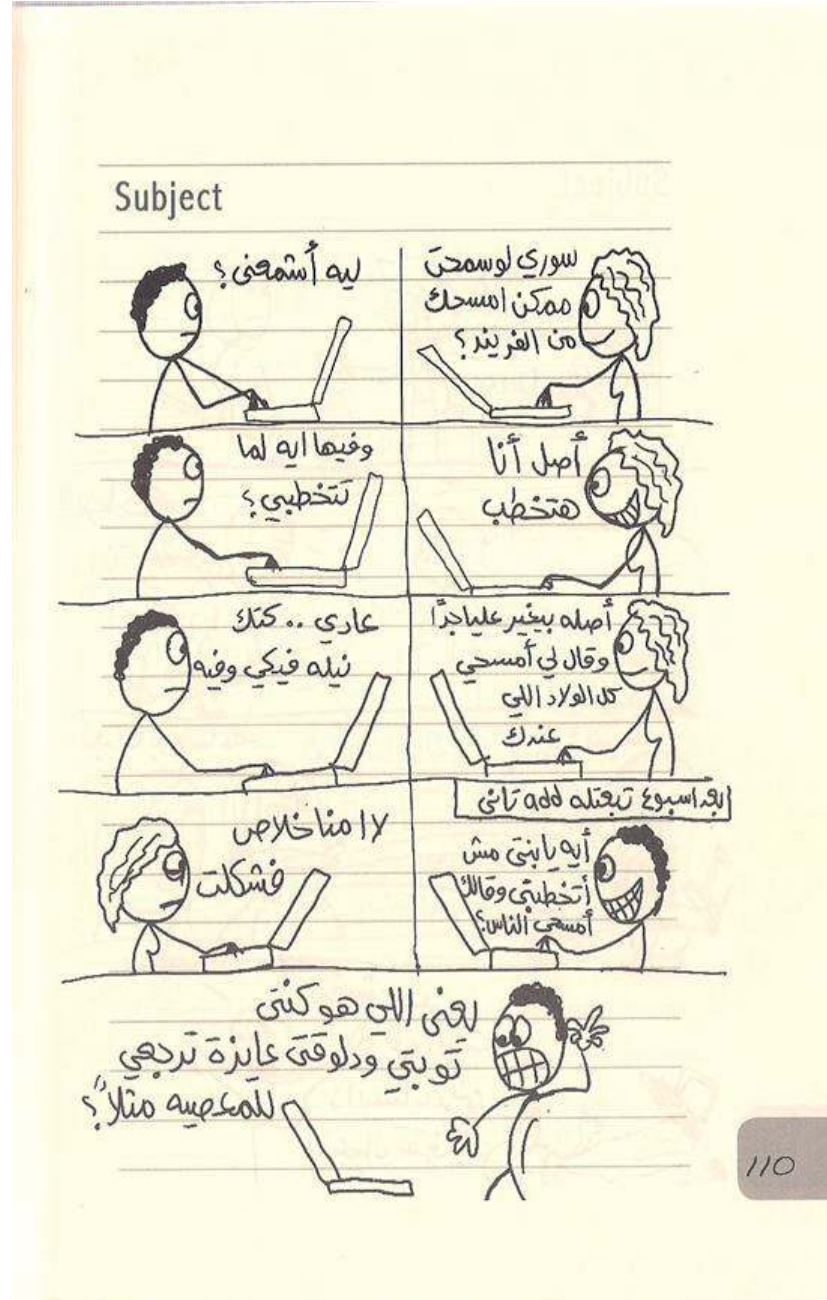 Subject
سوري لو سمحت
ممكن امسحك
من الفريند؟
ليه أشمعنى؟
أصل أنا
هتخطب
وفيها ايه لما
تتخطبي؟
أصله بيغير عليا جدًا
وقال لي أمسحي
كل الولاد اللي
عندك
عادي .. كتك
نيله فيكي وفيه
بعد اسبوع تبعتله add تاني
أيه يابنتي مش
أتخطبتي وقالك
أمسحي الناس؟
لا ا منا خلاص
فشكلت
يعني اللي هو كنتي
توبتي ودلوقتي عايزة ترجعي
للمعصيه مثلاً؟
110